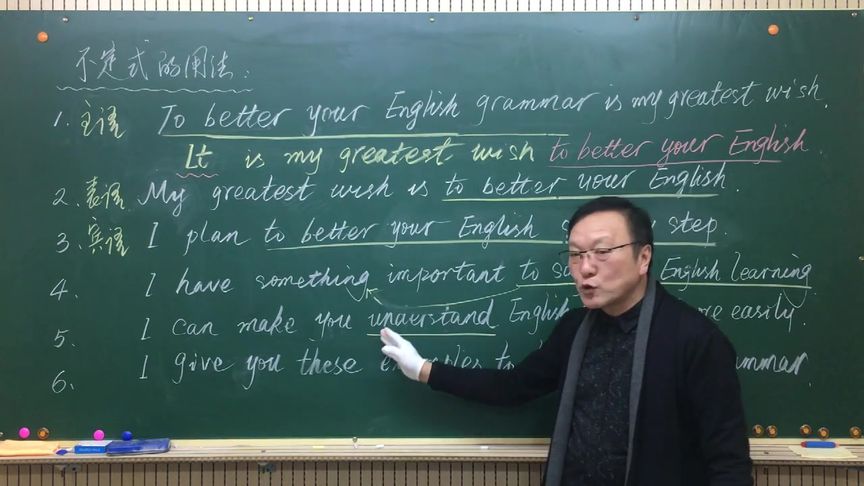 不定式的用法:
1. 主语 To better your English grammar is my greatest wish.
It is my greatest wish to better your English.
2. 表语 My greatest wish is to better your English.
3. 宾语 I plan to better your English step.
4. I have something important to English learning
5. I can make you understand English more easily.
6. I give you these examples to